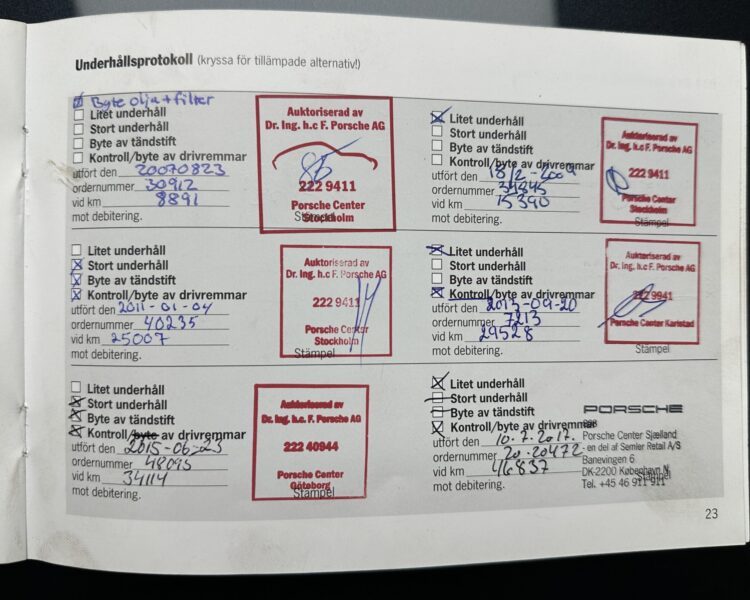 Underhållsprotokoll (kryssa för tillämpade alternativ!)
Byte olja + filter
Litet underhåll
Stort underhåll
Byte av tändstift
Kontroll/byte av drivremmar
utfört den 20070823
ordernummer 30912
vid km 8891
mot debitering.
Auktoriserad av
Dr. Ing. h.c F. Porsche AG
222 9411
Porsche Center
Stockholm
Stämpel
Litet underhåll
Stort underhåll
Byte av tändstift
Kontroll/byte av drivremmar
utfört den 18/2-2009
ordernummer 34345
vid km 15390
mot debitering.
Auktoriserad av
Dr. Ing. h.c F. Porsche AG
222 9411
Porsche Center
Stockholm
Stämpel
Litet underhåll
Stort underhåll
Byte av tändstift
Kontroll/byte av drivremmar
utfört den 2011-01-04
ordernummer 40235
vid km 25007
mot debitering.
Auktoriserad av
Dr. Ing. h.c F. Porsche AG
222 9411
Porsche Center
Stockholm
Stämpel
Litet underhåll
Stort underhåll
Byte av tändstift
Kontroll/byte av drivremmar
utfört den 2013-09-20
ordernummer 7213
vid km 29528
mot debitering.
Auktoriserad av
Dr. Ing. h.c F. Porsche AG
222 9941
Porsche Center Karlstad
Stämpel
Litet underhåll
Stort underhåll
Byte av tändstift
Kontroll/byte av drivremmar
utfört den 2015-06-23
ordernummer 48095
vid km 34114
mot debitering.
Auktoriserad av
Dr. Ing. h.c F. Porsche AG
222 40944
Porsche Center
Göteborg
Stämpel
Litet underhåll
Stort underhåll
Byte av tändstift
Kontroll/byte av drivremmar
utfört den 10.7.2017.
ordernummer 20-20472
vid km 46837
mot debitering.
PORSCHE
Porsche Center Sjælland
- en del af Semler Retail A/S
Banevingen 6
DK-2200 København N
Tel. +45 46 911 911
Stämpel
23